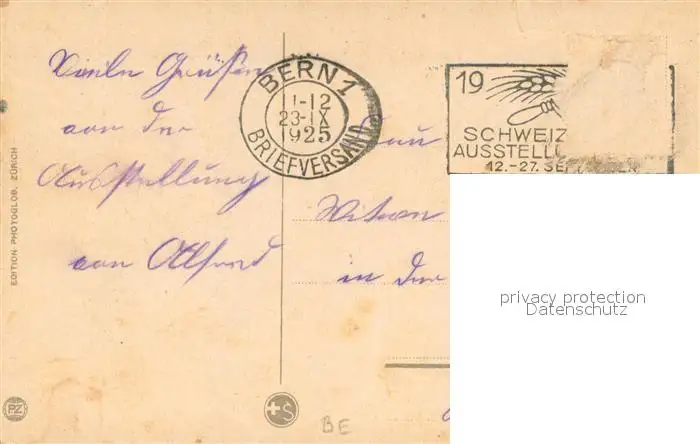 Viele Grüße
von der
Ausstellung
von Alfred
BERN 1
11-12
23·IX
1925
BRIEFVERSAND
19
SCHWEIZ
AUSSTELLU
12.-27. SEPTEMBER
in der
EDITION PHOTOGLOB, ZÜRICH
PZ
S
BE
privacy protection
Datenschutz